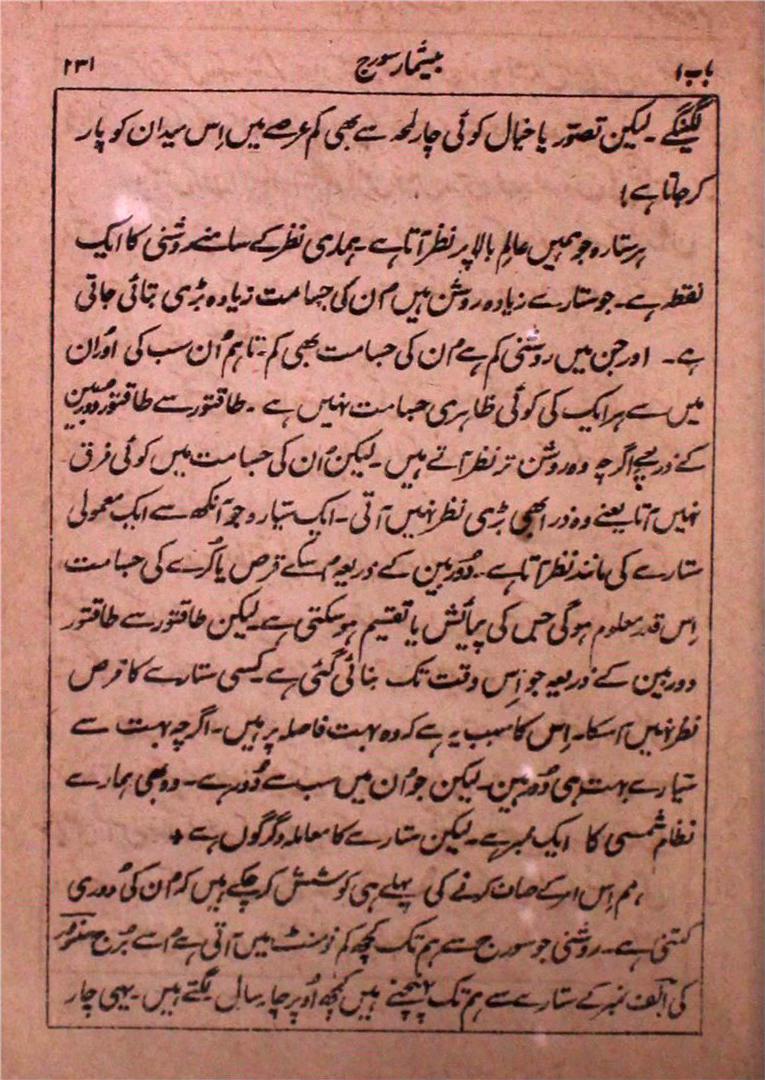 باب ۱ بیشمار سورج ۲۳۱
لگینگے۔ لیکن تصوّر یا خیال کوئی چار لمحہ سے بھی کم عرصے میں اِس میدان کو پار
کر جاتا ہے!
ہر ستارہ جو ہمیں عالمِ بالا پر نظر آتا ہے۔ ہماری نظر کے سامنے روشنی کا ایک
نقطہ ہے۔ جو ستارے زیادہ روشن ہیں اُن کی جسامت زیادہ بڑی بتائی جاتی
ہے۔ اور جن میں روشنی کم ہے اُن کی جسامت بھی کم۔ تاہم اُن سب کی اور اُن
میں سے ہر ایک کی کوئی ظاہری جسامت نہیں ہے۔ طاقتور سے طاقتور دوربین
کے ذریعے اگرچہ وہ روشن تر نظر آتے ہیں۔ لیکن اُن کی جسامت میں کوئی فرق
نہیں آتا یعنے وہ ذرا بھی بڑی نظر نہیں آتی۔ ایک سیارہ جو آنکھ سے ایک معمولی
ستارے کی مانند نظر آتا ہے۔ دُوربین کے ذریعہ اُسکے قرص یا کُرے کی جسامت
اِس قدر معلوم ہوگی جس کی پیمائش یا تقسیم ہو سکتی ہے۔ لیکن طاقتور سے طاقتور
دوربین کے ذریعہ جو اِس وقت تک بنائی گئی ہے۔ کسی ستارے کا قرص
نظر نہیں آسکا۔ اِس کا سبب یہ ہے کہ وہ بہت فاصلہ پر ہیں۔ اگرچہ بہت سے
سیارے بہت ہی دُور ہین۔ لیکن جو اُن میں سب سے دُور ہے۔ وہ بھی ہمارے
نظام شمسی کا ایک ممبر ہے۔ لیکن ستارے کا معاملہ دگرگوں ہے+
ہم اِس امر کے صاف کرنے کی پہلے ہی کوشش کر چکے ہیں کہ اُن کی دُوری
کتنی ہے۔ روشنی جو سورج سے ہم تک کچھ کم نو منٹ میں آتی ہے اُسے بُرج سنٹور
کی الف نمبر کے ستارے سے ہم تک پہنچنے میں کچھ اُوپر چار سال لگتے ہیں۔ یہی چار